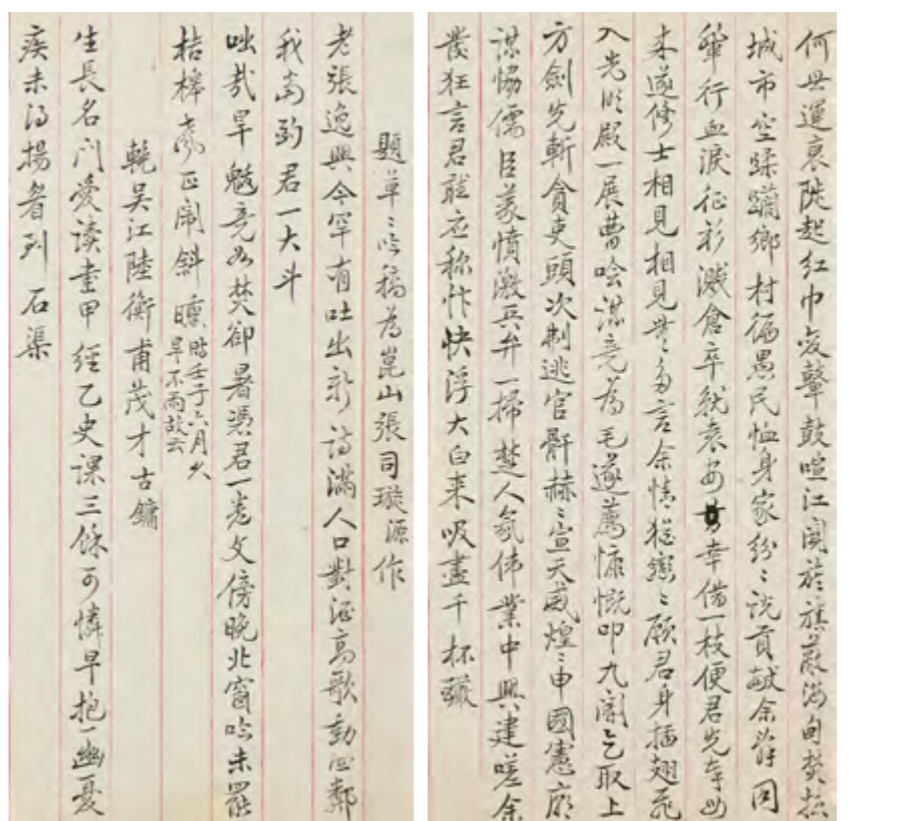 何世運衰陡起紅巾變鼙鼓喧江關旌旗蔽海甸焚掠
城市空蹂躪鄉村徧愚民恤身家紛〻說貢獻余省同
輦行血淚征衫濺倉卒就袁安幸借一枝便君先車
來邀修士相見相見無多言余情猶戀〻願君身插翅飛
入光明殿一展曹噲謀竟為毛遂薦慷慨叩九閽乞取上
方劍先斬貪吏頭次制逃官骭赫〻宣天威煌〻申國憲廟
謀協儒臣義憤激兵弁一掃楚人氛偉業中興建嗟余
發狂言君聽應稱忭快浮大白來吸盡千杯
題草〻吟稿為崑山張司璇源作
老張逸興今罕有吐出新詩滿人口對酒高歌動四鄰
我為酌君一大斗
咄哉旱魃竟如焚卻暑憑君一卷文傍晚北窗吟未罷
桔槔聲正鬧斜曛時壬子六月久旱不雨故云
輓吳江陸衡甫茂才古鏞
生長名門愛讀書甲經乙史課三餘可憐早抱幽憂
疾未得揚名列石渠